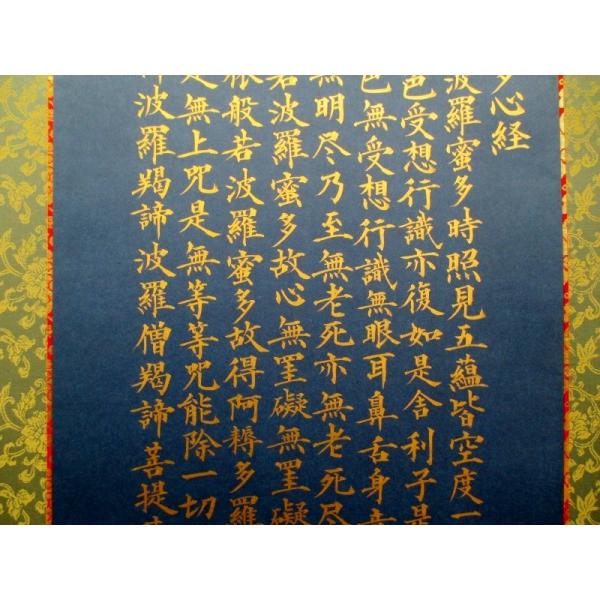 多心経
波羅蜜多時照見五蘊皆空度一
色受想行識亦復如是舎利子是
色無受想行識無眼耳鼻舌身意
無明尽乃至無老死亦無老死尽
若波羅蜜多故心無罣礙無罣礙
依般若波羅蜜多故得阿耨多羅
是無上呪是無等等呪能除一切
諦波羅羯諦波羅僧羯諦菩提